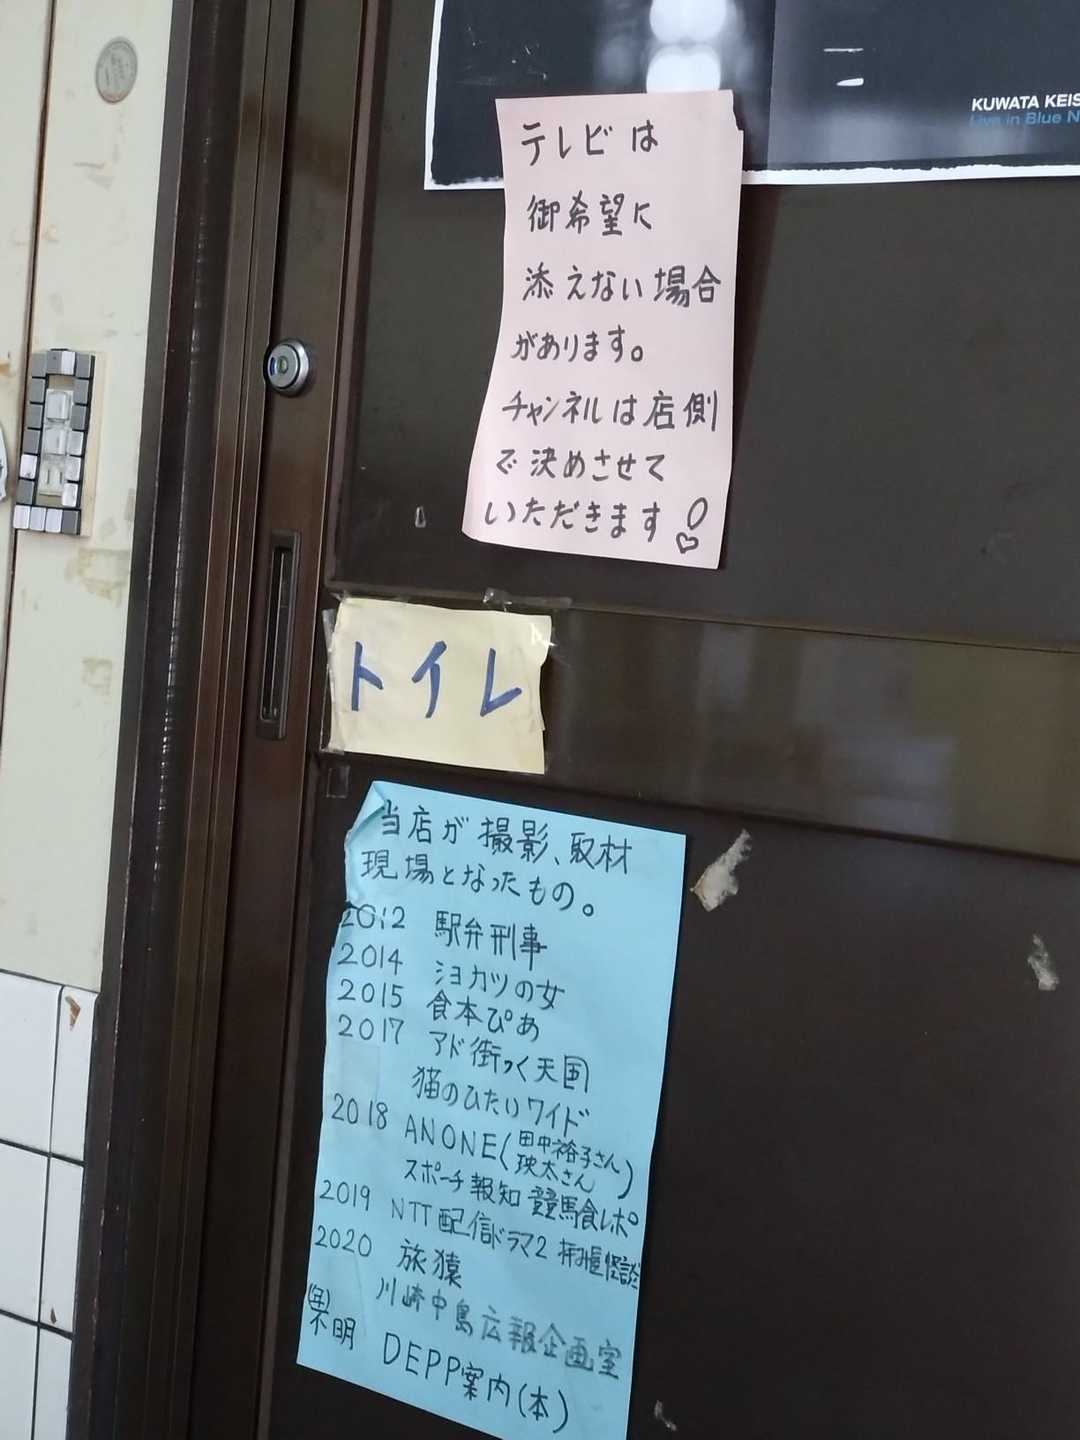 KUWATA KEIS
Live in Blue N
テレビは
御希望に
添えない場合
があります。
チャンネルは店側
で決めさせて
いただきます
トイレ
当店が撮影、取材
現場となったもの。
2012 駅弁刑事
2014 ショカツの女
2015 食本ぴあ
2017 アド街っく天国
猫のひたいワイド
2018 ANONE(田中裕子さん
瑛太さん)
スポーチ報知 競馬食レポ
2019 NTT配信ドラマ2
2020 旅猿
川崎中島広報企画室
(年)
不明 DEPP案内(本)